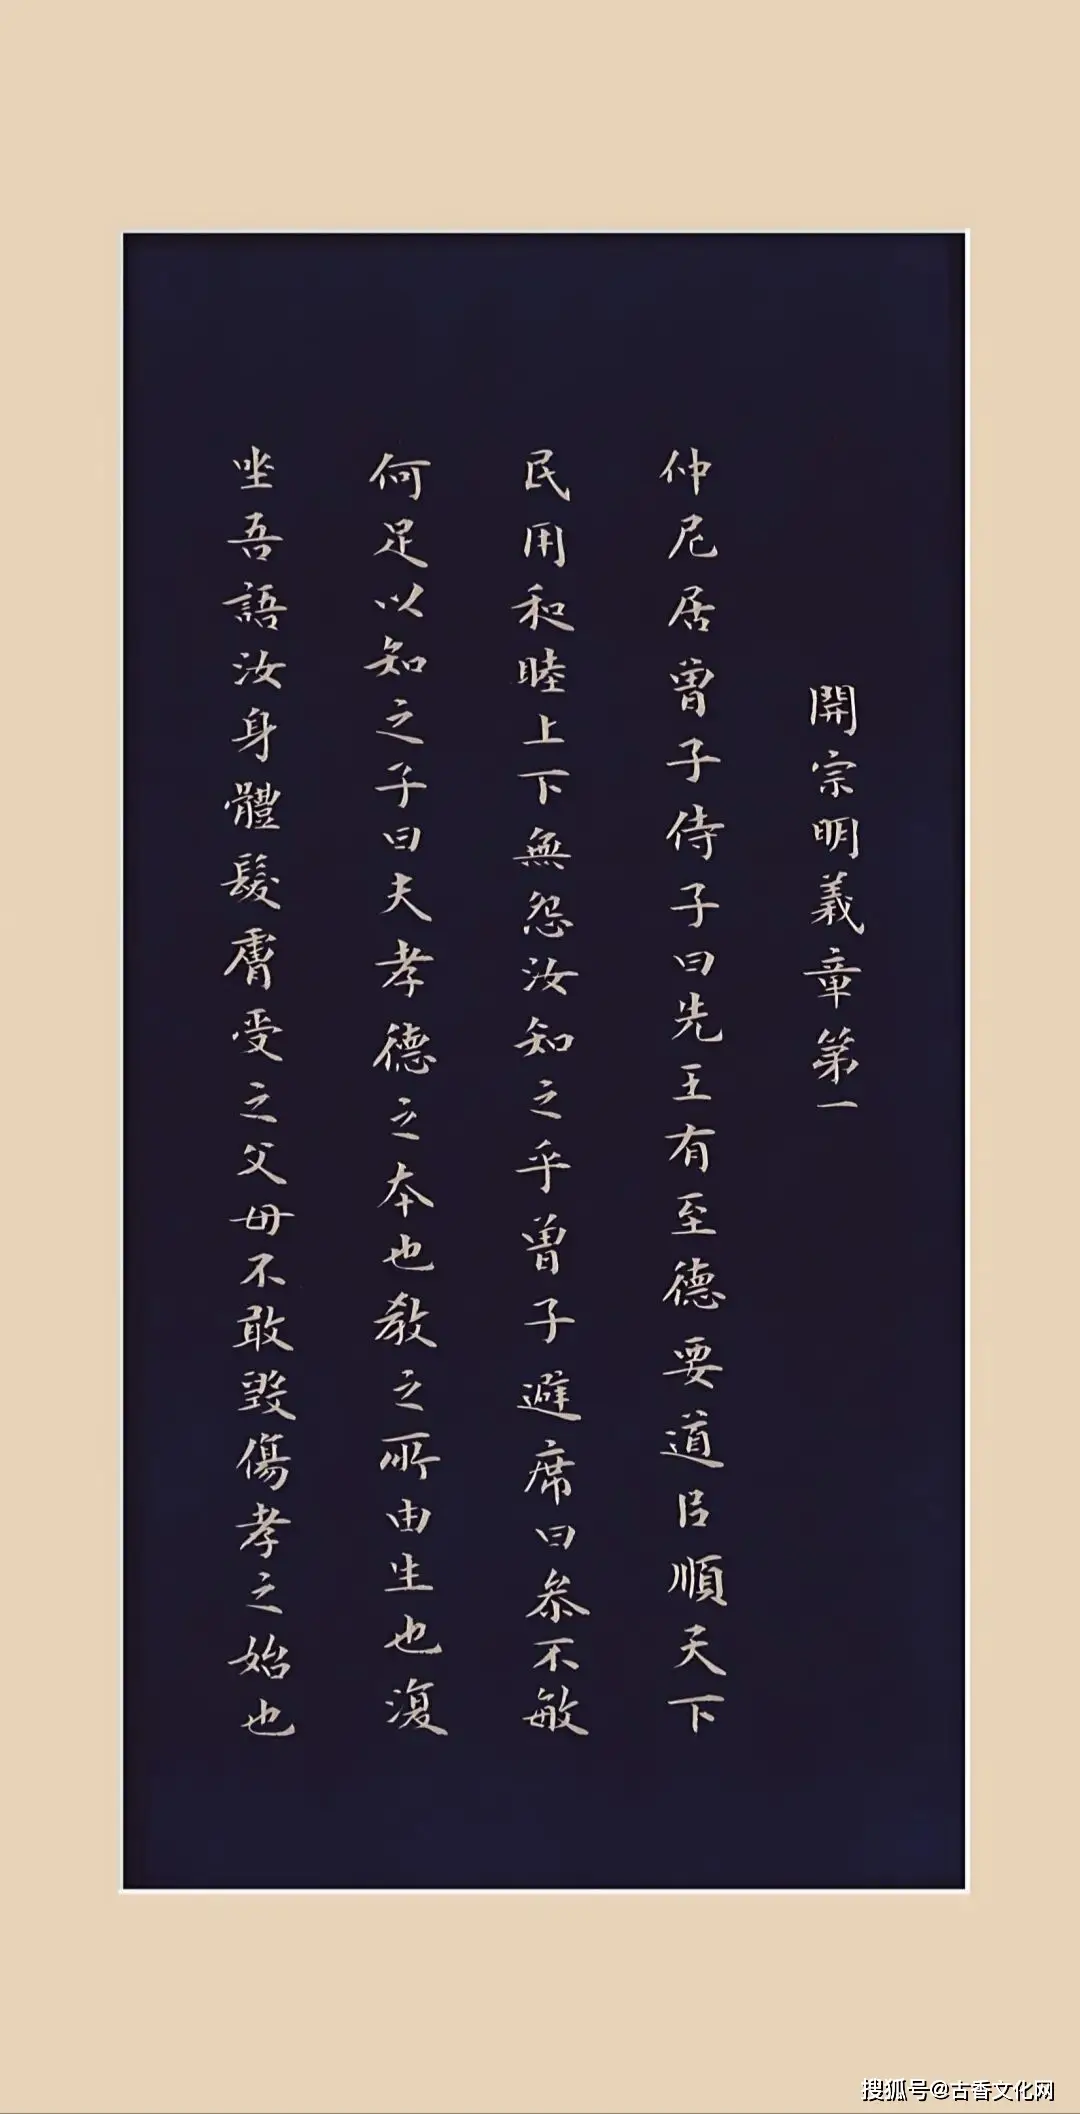 開宗明義章第一
仲尼居曾子侍子曰先王有至德要道㠯順天下
民用和睦上下無怨汝知之乎曾子避席曰參不敏
何足以知之子曰夫孝德之本也教之所由生也復
坐吾語汝身體髮膚受之父母不敢毀傷孝之始也
搜狐号@古香文化网